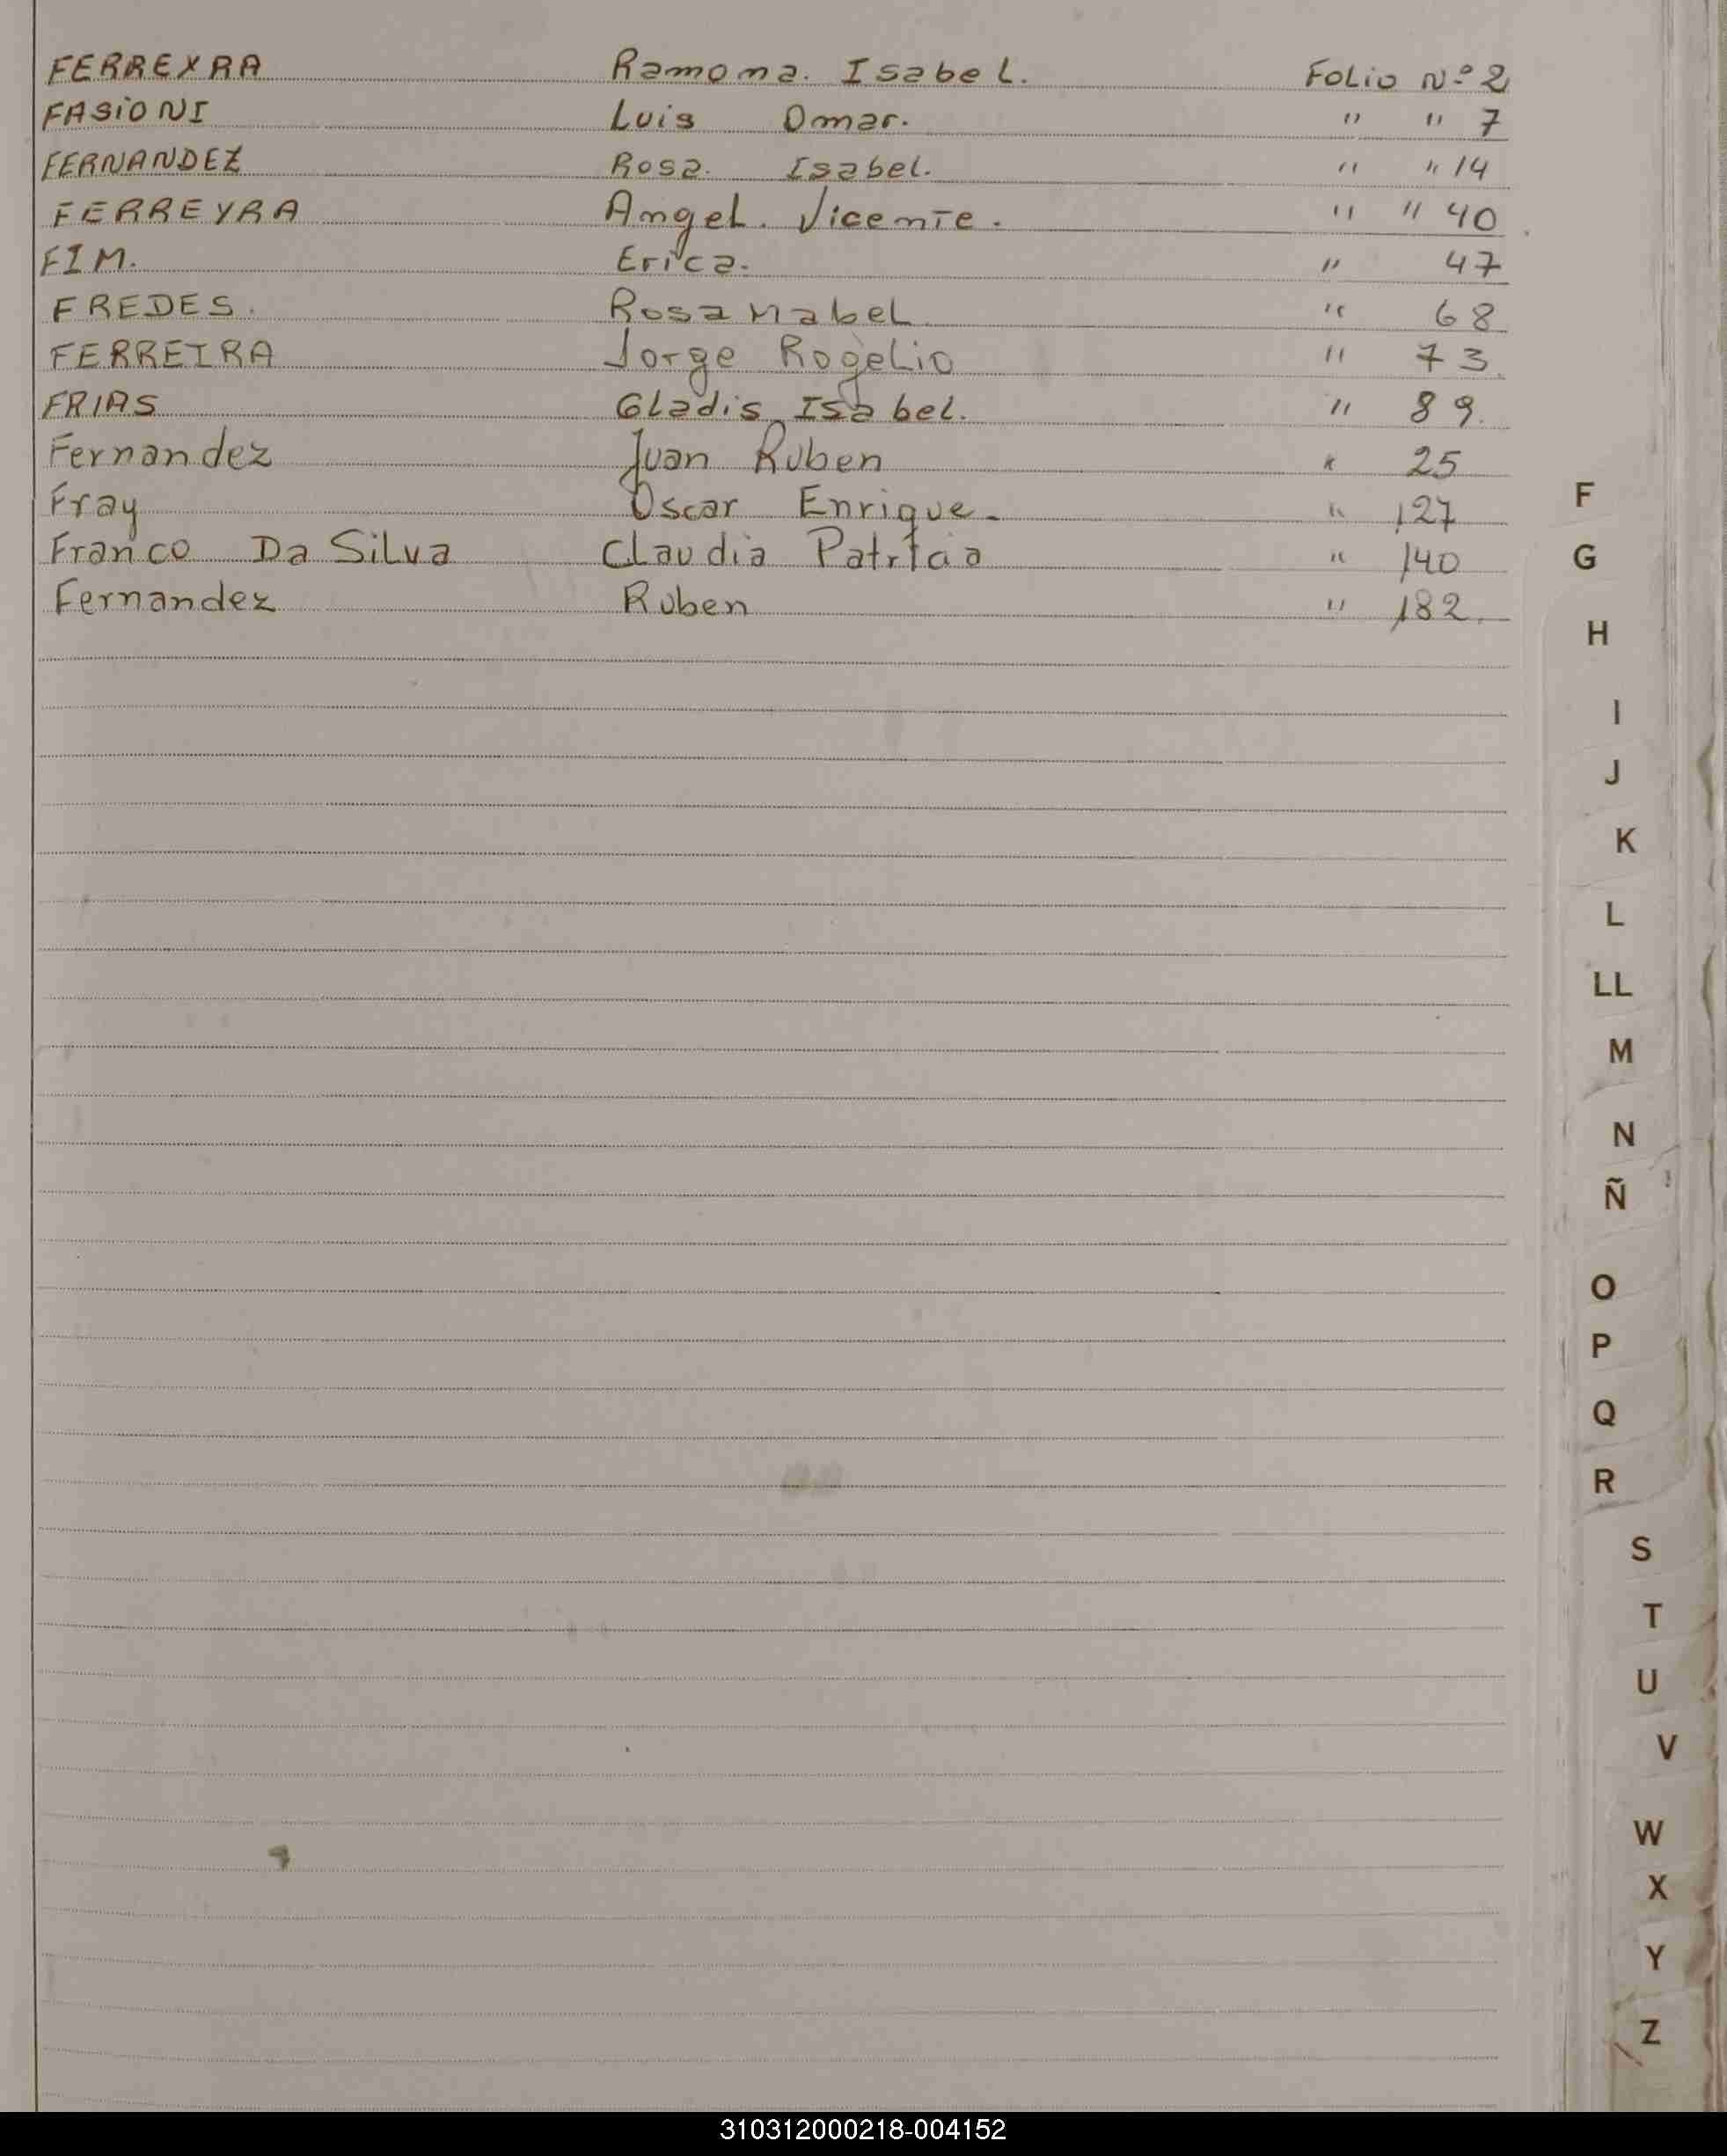 FERREYRA Ramona. Isabel. Folio Nº 2
FASIONI Luis Omar. " " 7
FERNANDEZ Rosa. Isabel. " " 14
FERREYRA Angel. Vicente. " " 40
FIM. Erica. " 47
FREDES. Rosa Mabel " 68
FERREIRA Jorge Rogelio " 73
FRIAS Gladis Isabel. " 89.
Fernandez Juan Ruben " 25
Fray Oscar Enrique- " 127
Franco Da Silva Claudia Patricia " 140
Fernandez Ruben " 182.
F
G
H
I
J
K
L
LL
M
N
Ñ
O
P
Q
R
S
T
U
V
W
X
Y
Z
310312000218-004152